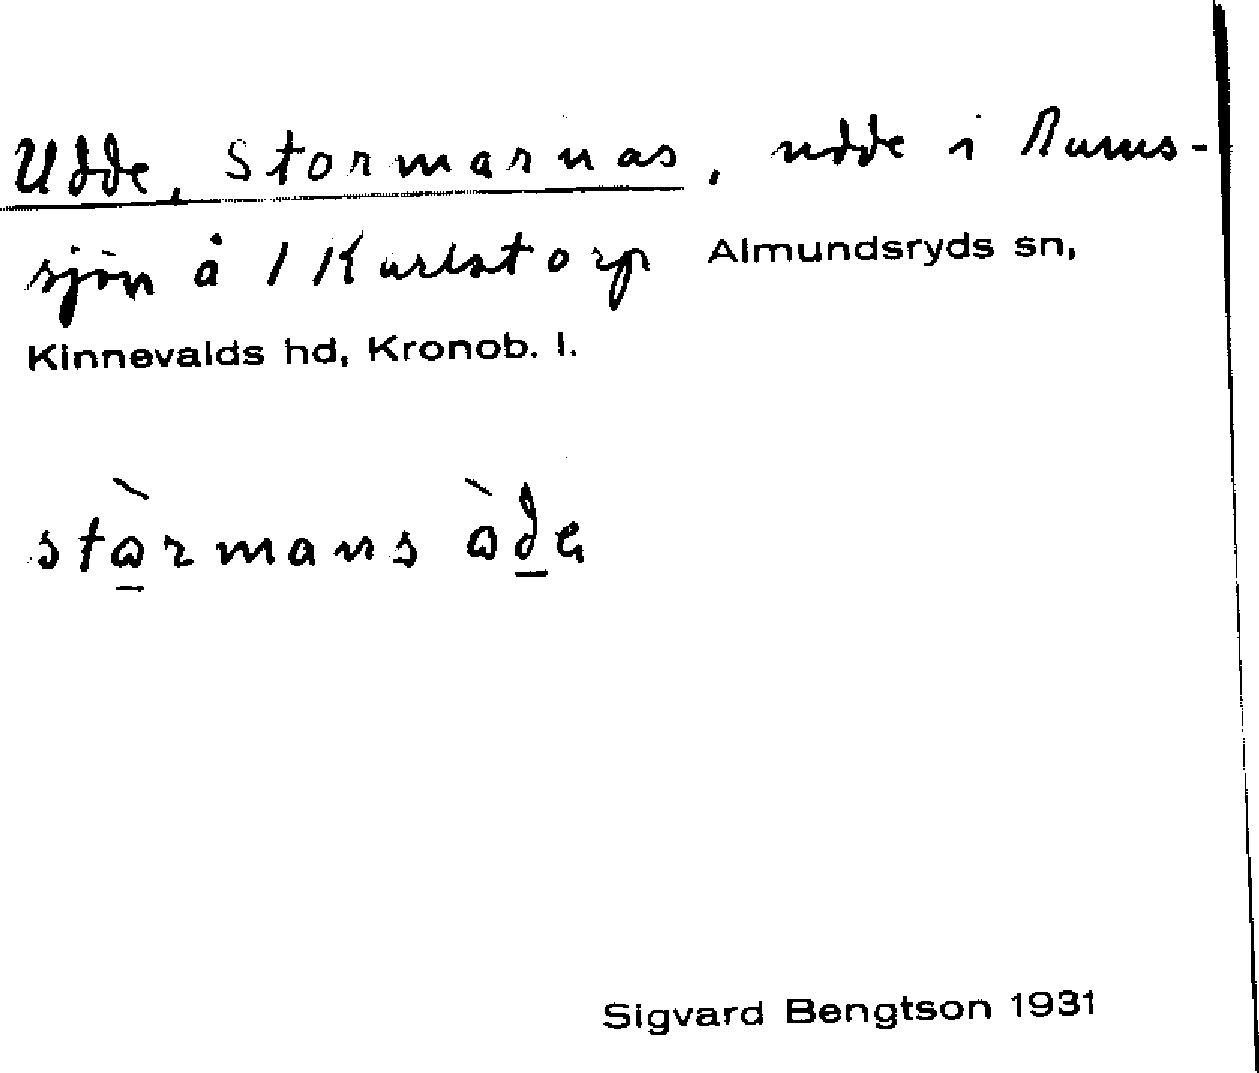 Udde, Stormarnas, udde i Rums-
sjön å 1 Karlstorp Almundsryds sn,
Kinnevalds hd, Kronob. l.
stòrmans òde
Sigvard Bengtson 1931